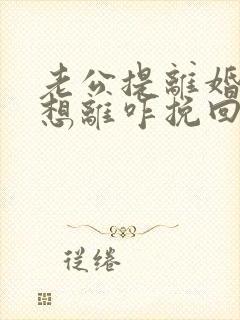 老公提離婚
想離咋挽回
從绻